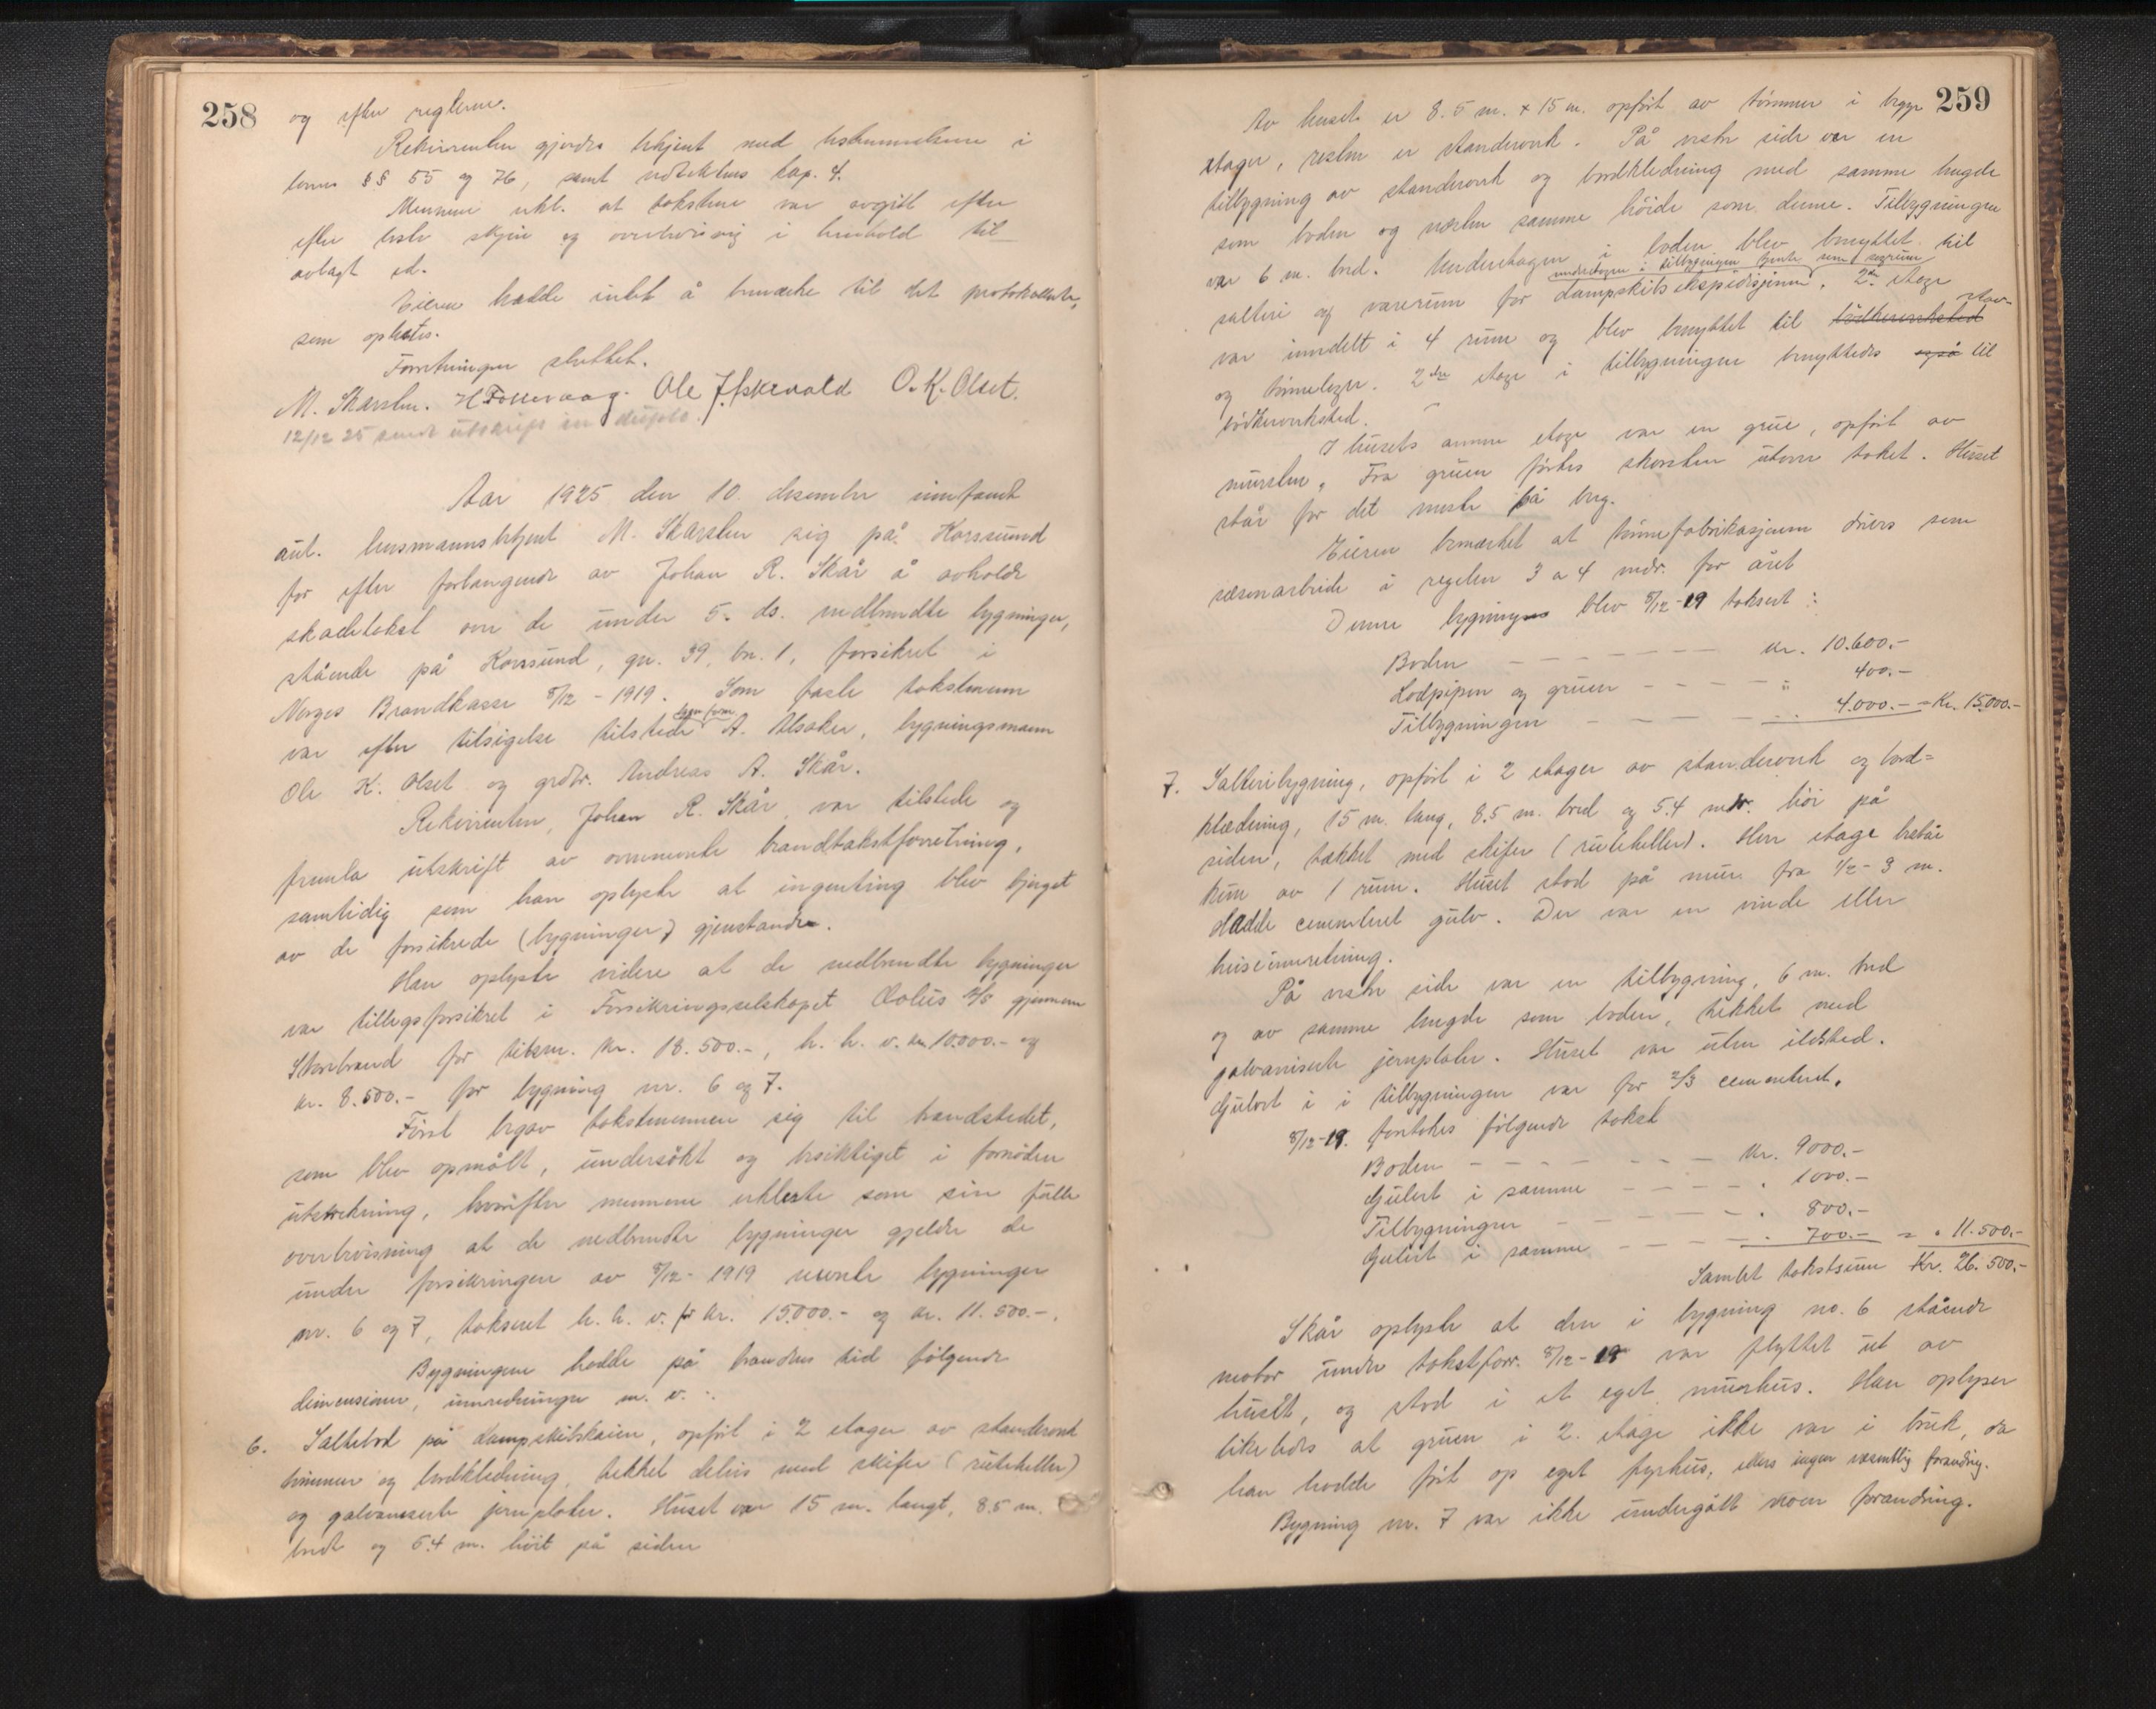 258
og efter reglerne.
Rekvirenten gjordes bekjent med bestemmelsene i
lovens §§ 55 og 76, samt vedtektens kap. 4.
Mennene erkl. at takstene var avgitt efter
efter beste skjøn og overbevisning i henhold til
avlagt ed.
Eieren hadde intet å bemerke til det protokollerte,
som oplestes.
Forretningen sluttet.
M. Skarsten. H Tollevaag. Ole J. Askevold O. K. Olset.
12/12 25 sendt utskrift in duplo.
Aar 1925 den 10. desember innfandt
aut. lensmannsbetjent M. Skarsten sig på Korssund
for efter forlangende av Johan R. Skår å avholde
skadetakst over de under 5. ds. nedbrendte bygninger,
stående på Korssund, gn. 39, bn. 1, forsikret i
Norges Brandkasse 8/12 - 1919. Som faste takstmenn
var efter tilsigelse tilstede A. Utsaker, bygningsmann
Ole K. Olset og grdbr. Andreas A. Skår.
Rekvirenten, Johan R. Skår, var tilstede og
fremla utskrift av ovennevnte brandtakstforretning,
samtidig som han oplyste at ingenting blev bjerget
av de forsikrede (bygninger) gjenstande.
Han oplyste videre at de nedbrendte bygninger
var tilleggsforsikret i Forsikringsselskapet Æolus A/S gjennem
Storebrand for tilsm. kr. 18.500.-, h. h. v. kr. 10.000.- og
kr. 8.500.- for bygning nr. 6 og 7.
Først begav takstmennen sig til brandstedet,
som blev opmålt, undersøkt og besiktiget i fornøden
utstrekning, hvorefter mennene erklerte som sin fulle
overbevisning at de nedbrendte bygninger gjelder de
under forsikringen av 8/12- 1919 nevnte bygninger
nr. 6 og 7, taksert h. h. v. for kr. 15000.- og kr. 11.500.-.
Bygningene hadde på brandens tid følgende
dimensioner, innredninger m. v. :
6. Saltebod på Dampskibskaien, opført i 2 etager av standerverk
tømmer og bordkledning, tekket delvis med skifer (ruteheller)
og galvaniserte jernplater. Huset var 15 m. langt, 8.5 m.
bredt og 5.4 m. høit på siden
259
Av huset er 8.5 m. x 15 m. opført av tømmer i begge
etager, resten er standerverk. På vestre side var en
tilbygning av standerverk og bordkledning med samme lengde
som boden og nesten samme høide som denne. Tilbygningen
var 6 m. bred. Underetagen i boden blev benyttet til
underetagen i tilbygningen tjente som
salteri og varerum for dampskibsekspedisjonen. 2. etage
var inndelt i 4 rum og blev benyttet til bødkerverksted
og tønnelager. 2den etage i tilbygningen benyttedes også til
bødkerverksted.
I husets annen etage var en grue, opført av
murstein. Fra gruen førtes skorsten utover taket. Huset
står for det meste på berg.
Eieren bemerket at tønnefabrikasjonen drives som
sæsonarbeide i regelen 3 a 4 mdr. for året
Denne bygning blev 8/12-19 taksert :
Boden - - - - - - kr. 10.600.-
Lodpipen og gruen - - - - " 400.-
Tilbygningen - - - - 4.000.- = Kr. 15.000.-
7. Salteribygning, opført i 2 etager av standerverk og bord-
klædning, 15 m. lang, 8.5 m. bred og 5.4 mtr. høi på
siden, tækket med skifer (ruteheller). Hver etage består
kun av 1 rum. Huset stod på mur fra 1/2 - 3 m.
Hadde cementeret gulv. Der var en vinde eller
heiseinnretning.
På vestre side var en tilbygning, 6 m. bred
og av samme lengde som boden, tekket med
galvaniserte jernplater. Huset var uten ildsted.
Gulvet i i tilbygningen var for 2/3 cementeret.
8/12-19. foretokes følgende takst
Boden - - - - - - kr. 9000.-
Gulvet i samme - - - - 1000.-
Tilbygningen - - - - - 800.-
Gulvet i samme - - - - 700.- = " 11.500.-
Samlet takstsum Kr. 26.500.-
Skår oplyste at den i bygning no. 6 stående
motor under takstforr. 8/12-19 var flyttet ut av
huset, og stod i et eget murhus. Han oplyser
likeledes at gruen i 2. etage ikke var i bruk, da
han hadde ført op eget fyrhus, ellers ingen vesentlig forandring.
Bygning nr. 7 var ikke undergått noen forandring.